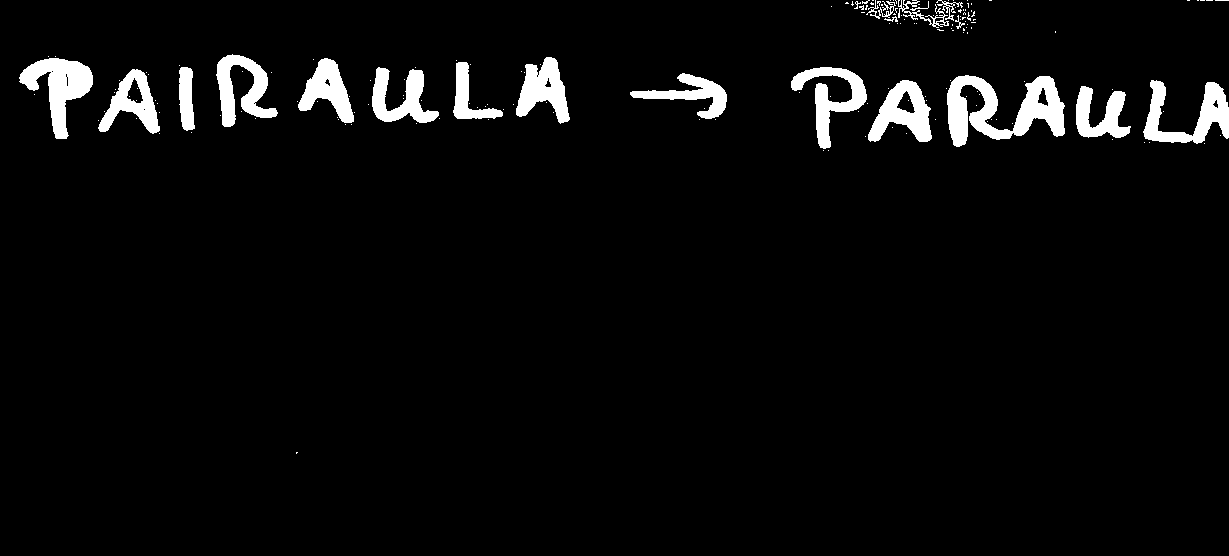 PAIRAULA → PARAULA